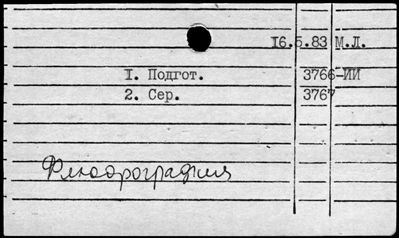 16.5.83 М.Л.
1. Подгот. 3766-ИИ
2. Сер. 3767
Флюорография